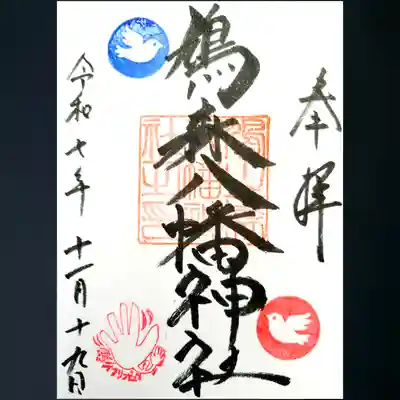 奉拝
鳩森八幡神社
令和七年十一月十九日